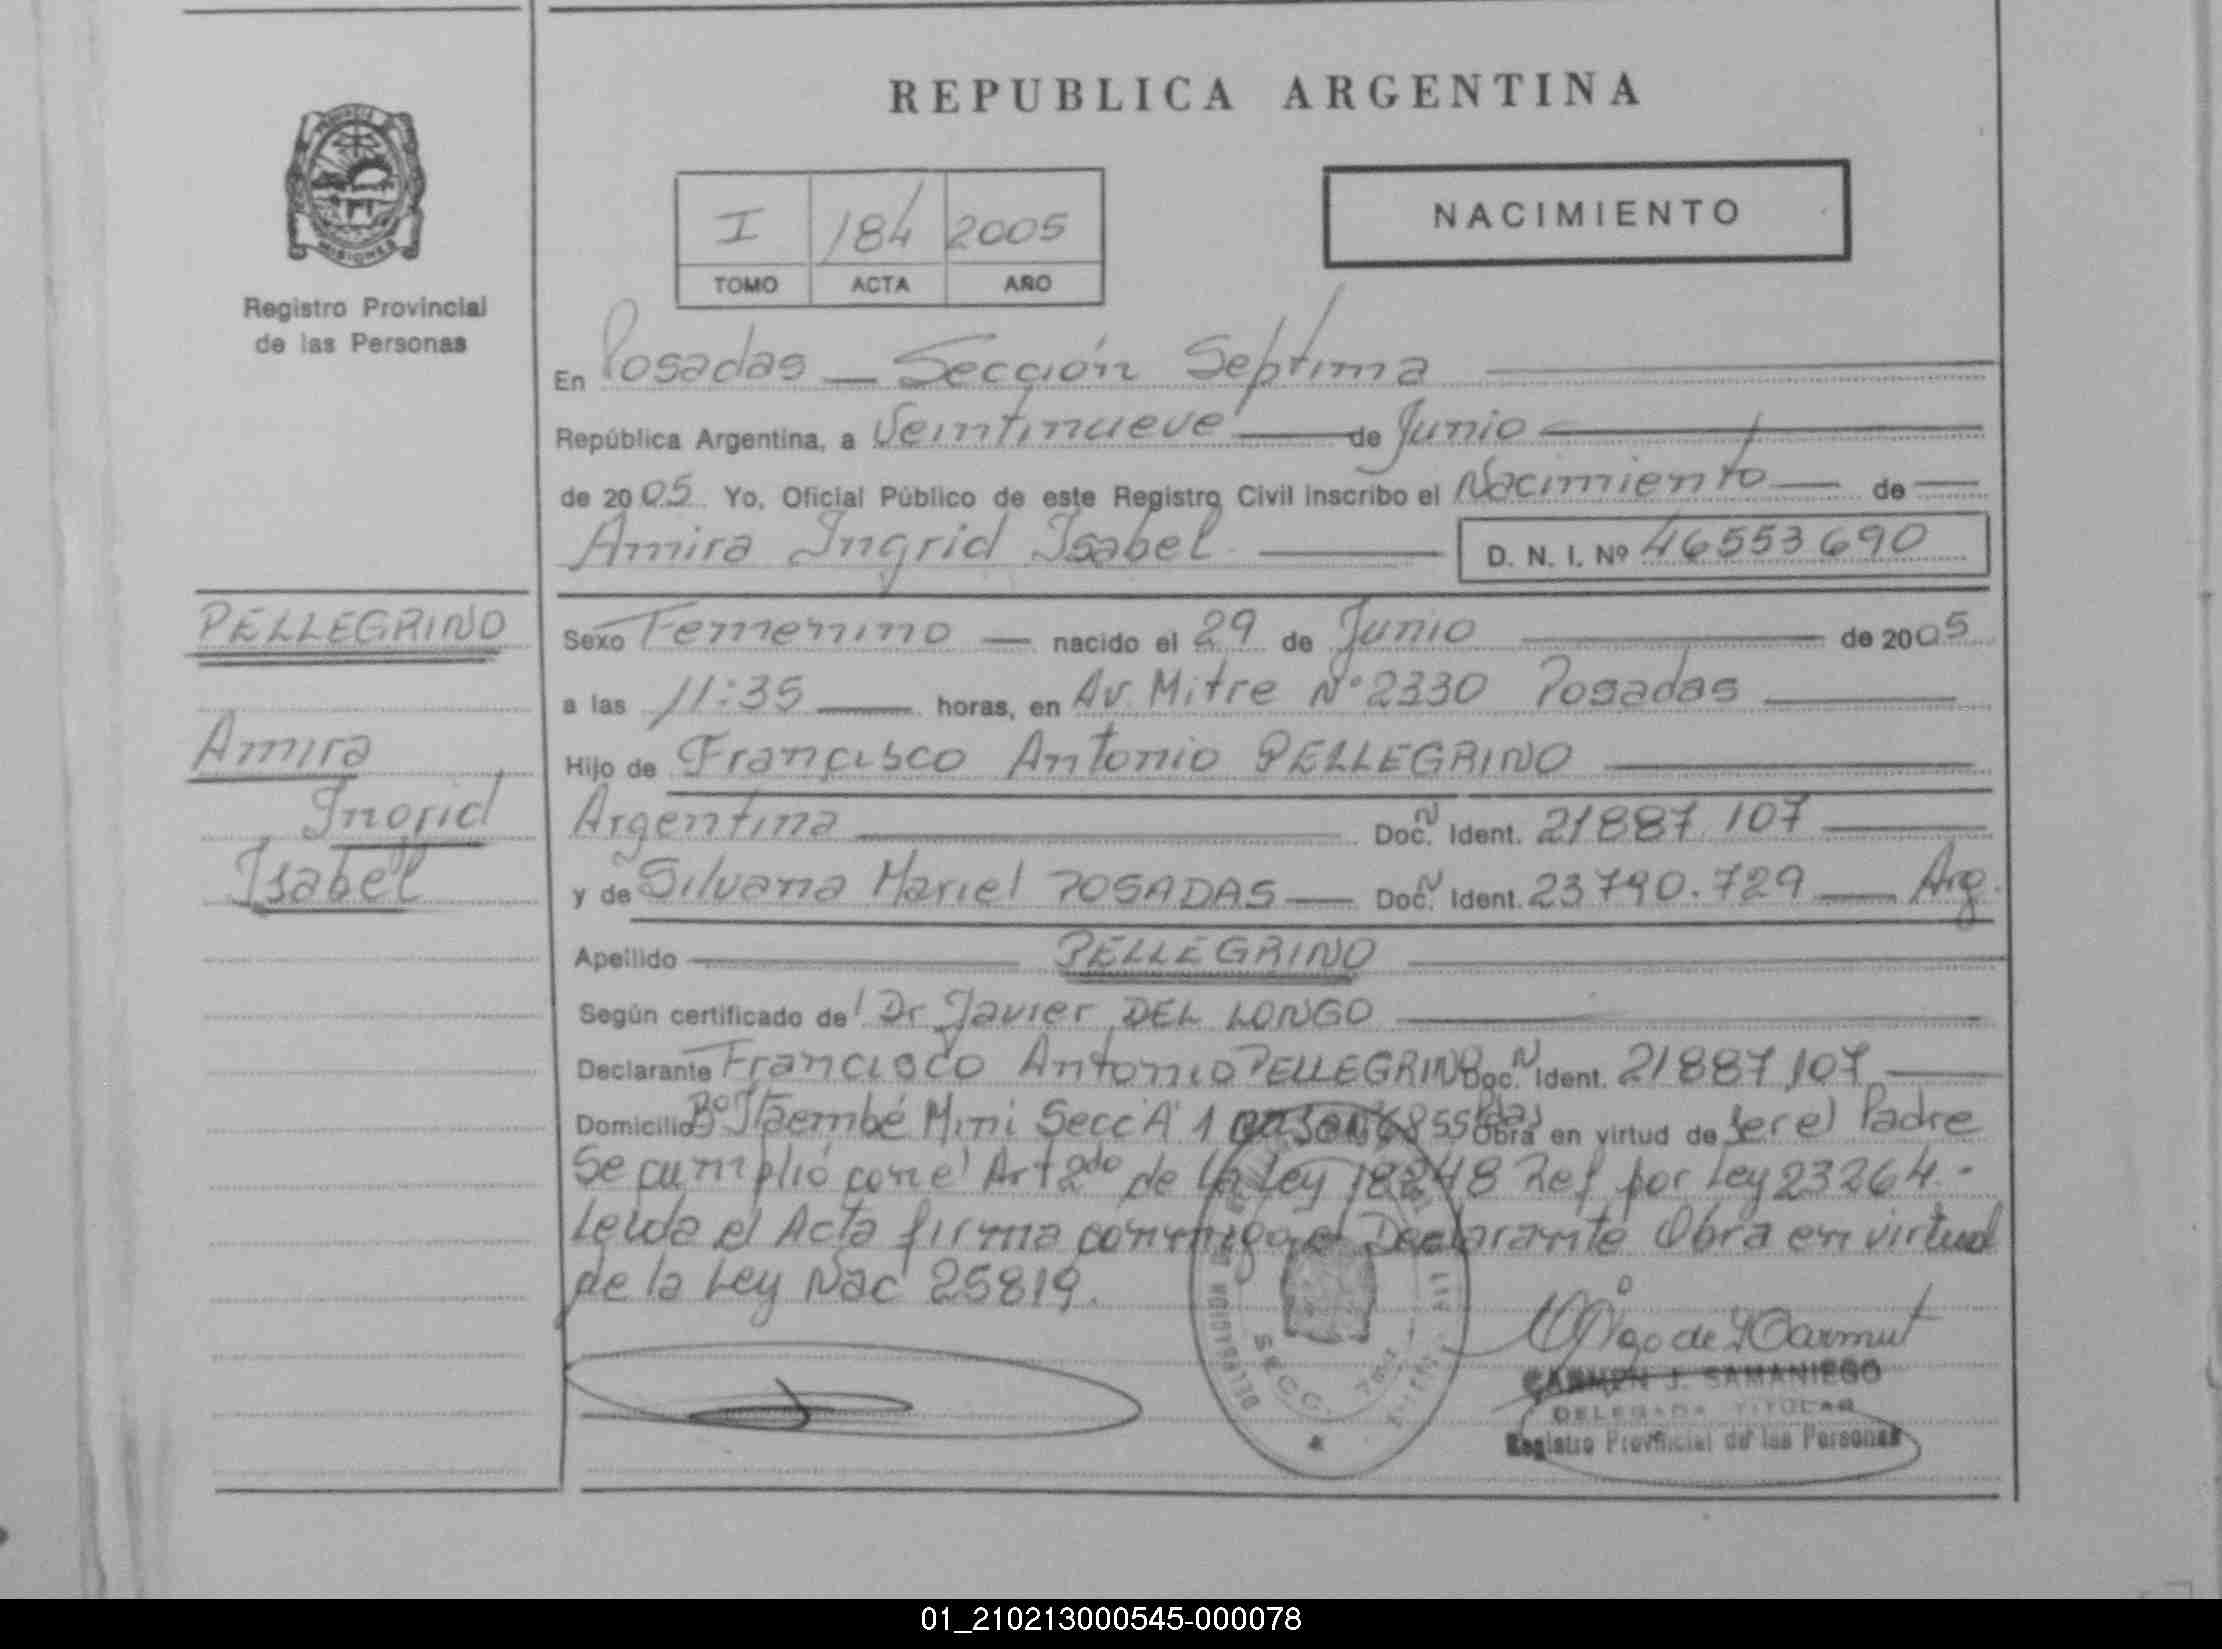 REPUBLICA ARGENTINA
NACIMIENTO
I 184 2005
TOMO ACTA AÑO
MISIONES
Registro Provincial
de las Personas
En Posadas — Sección Septima
República Argentina, a Veintinueve de Junio
de 2005 Yo, Oficial Público de este Registro Civil inscribo el Nacimiento de
Amira Ingrid Isabel D. N. I. Nº 46553690
PELLEGRINO
Amira
Ingrid
Isabel
Sexo Femenino nacido el 29 de Junio de 2005
a las 11:35 horas, en Av. Mitre Nº 2330 Posadas
Hijo de Francisco Antonio PELLEGRINO
Argentina Doc. N Ident. 21887107
y de Silvana Mariel POSADAS Doc. N Ident. 23790.729 Arg.
Apellido PELLEGRINO
Según certificado de Dr Javier DEL LONGO
Declarante Francisco Antonio PELLEGRINO Doc. N Ident. 21887107
Domicilio Bº Itaembé Mini Secc "A" 1 6855 Pdas Obra en virtud de ser el Padre
Se cumplió con el Art 2do de la Ley 18248 Ref por Ley 23264.-
Leida el Acta firma conmigo el Declarante Obra en virtud
de la Ley Nac 25819.
DELEGACION
SECC.
CARMEN J. SAMANIEGO
DELEGADA TITULAR
Registro Provincial de las Personas
01_210213000545-000078